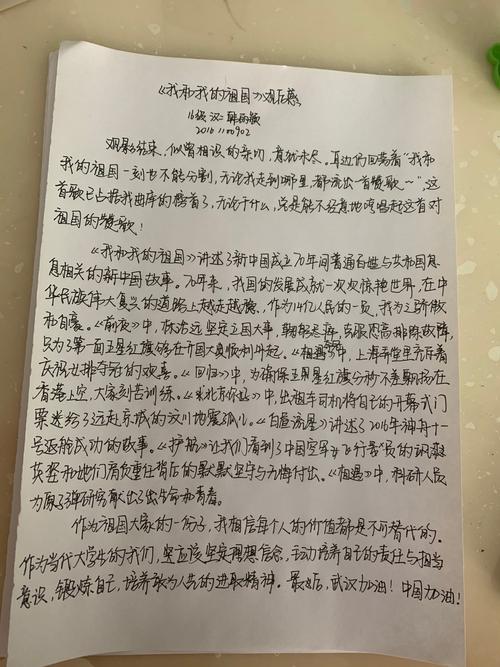 《我和我的祖国》观后感
16级 汉二
2016110902
观影结束，似曾相识的亲切，意犹未尽。耳边仍回荡着“我和
我的祖国一刻也不能分割，无论我走到哪里，都流出一首赞歌～”这
首歌已占据我曲库的榜首了，无论干什么，总是能不经意地哼唱起这首对
祖国的赞歌！
《我和我的祖国》讲述了新中国成立70年间普通百姓与共和国息
息相关的新中国故事。70年来，我国的发展成就一次次惊艳世界，在中
华民族伟大复兴的道路上越走越稳，作为14亿人民的一员，我为之骄傲
和自豪。《前夜》中，林治远坚定立国大事，克服恐高排除故障，
只为了第一面五星红旗能够在开国大典顺利升起。《相遇》中，上海弄堂里充斥着
庆祝女排夺冠的欢喜。《回归》中，为确保五星红旗分秒不差飘扬在
香港上空，大家刻苦训练。《北京你好》中，出租车司机将自己的开幕式门
票送给了远赴京城的汶川地震孤儿。《白昼流星》讲述了2016年神舟十一
号返航成功的故事。《护航》让我们看到了中国空军女飞行员的飒爽
英姿和她们肩负重任背后的默默坚守与无悔付出。《相遇》中，科研人员
为原子弹研究献出了生命和青春。
作为祖国大家的一份子，我相信每个人的价值都是不可替代的。
作为当代大学生的我们，更应该坚定理想信念，主动培养自己的责任与担当
意识，锻炼自己，培养敢为人先的进取精神。最后，武汉加油！中国加油！